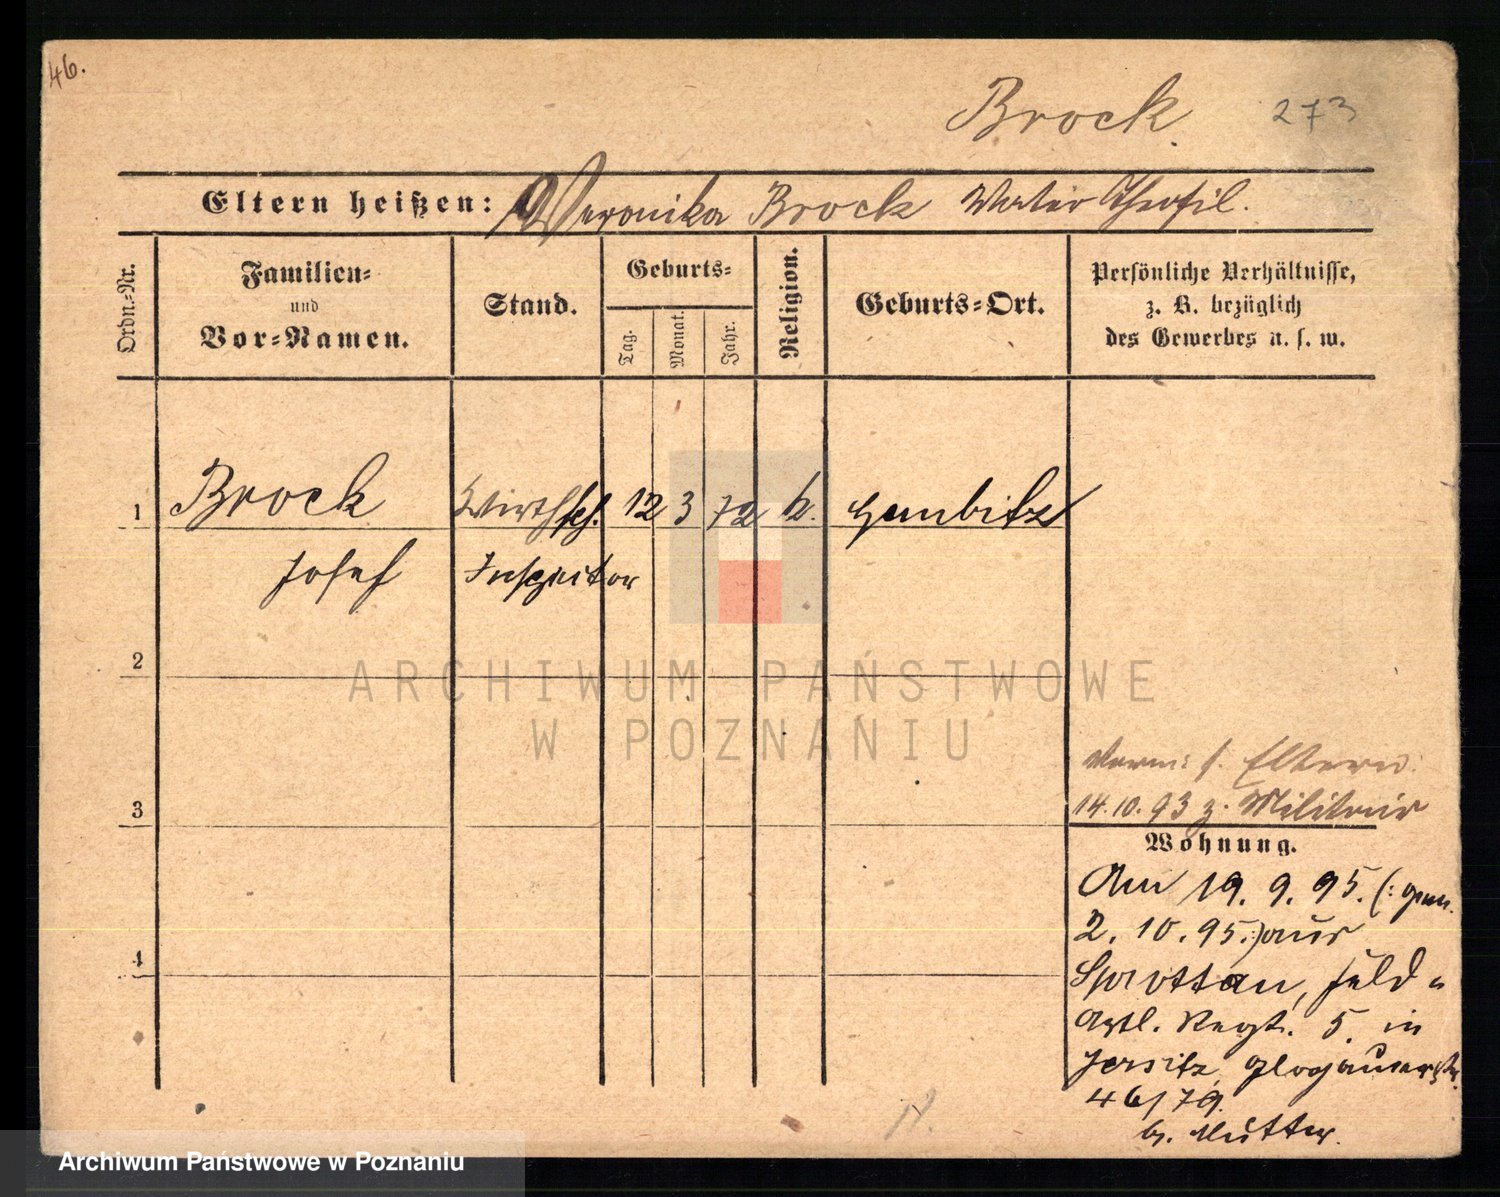 46.
Brock 273
Eltern heißen: Veronika Brock Vater Theofil.
Ordn.-Nr.
Familien-
und
Vor-Namen.
Stand.
Geburts-
Tag.
Monat.
Jahr.
Religion.
Geburts-Ort.
Persönliche Verhältnisse,
z. B. bezüglich
des Gewerbes u. s. w.
1 Brock Wirthsch. 12 3 72 k. Gembitz
Josef Inspektor
2
3
4
ARCHIWUM PAŃSTWOWE
W POZNANIU
s. Eltern.
14.10.93 z. Militair
Wohnung.
Am 19. 9. 95. (: gem.
2. 10. 95.:) aus
Sprottau, Feld-
Artl. Regt. 5. in
Jersitz, Glogauerstr.
46/79.
b. Mutter.
Archiwum Państwowe w Poznaniu